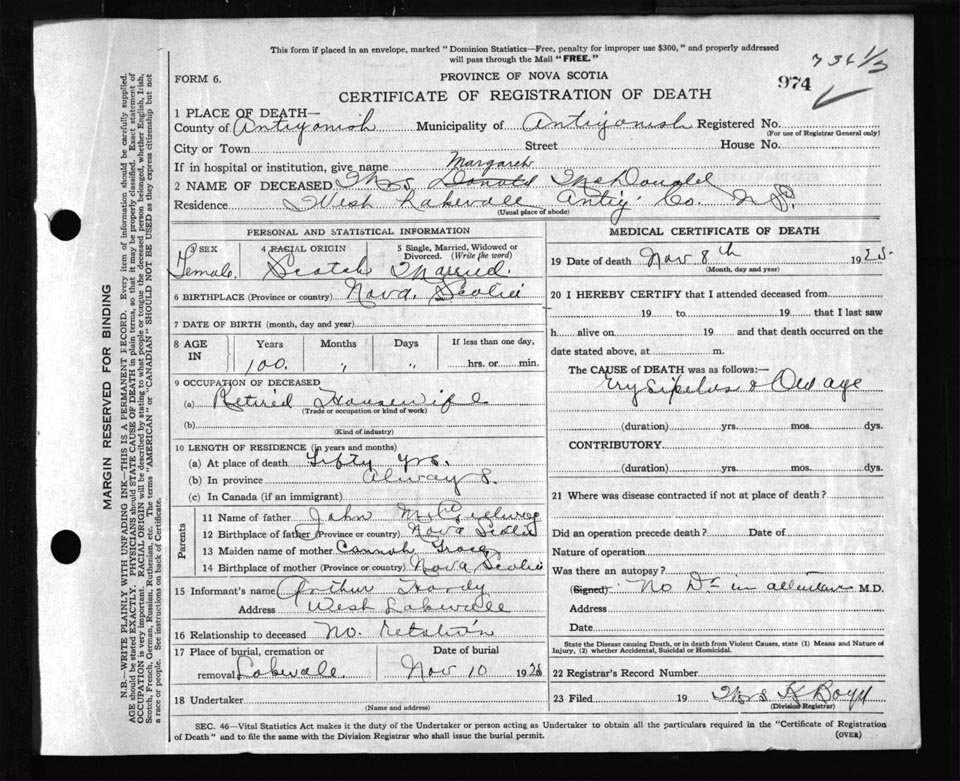 This form if placed in an envelope, marked "Dominion Statistics—Free, penalty for improper use $300," and properly addressed
will pass through the Mail "FREE."
736 1/3
FORM 6.
PROVINCE OF NOVA SCOTIA
974
CERTIFICATE OF REGISTRATION OF DEATH
1 PLACE OF DEATH—
County of Antigonish Municipality of Antigonish Registered No.
(For use of Registrar General only)
City or Town Street House No.
If in hospital or institution, give name
Margaret
2 NAME OF DECEASED Mrs Donald McDonald
Residence West Lakevale Antig. Co. N.S.
(Usual place of abode)
PERSONAL AND STATISTICAL INFORMATION
3 SEX 4 RACIAL ORIGIN 5 Single, Married, Widowed or Divorced. (Write the word)
Female. Scotch Married.
6 BIRTHPLACE (Province or country) Nova. Scotia
7 DATE OF BIRTH (month, day and year)
8 AGE IN Years Months Days If less than one day,
100. " " hrs. or min.
9 OCCUPATION OF DECEASED
(a) Retired Housewife
(Trade or occupation or kind of work)
(b)
(Kind of industry)
10 LENGTH OF RESIDENCE (in years and months)
(a) At place of death Fifty yrs.
(b) In province Always.
(c) In Canada (if an immigrant)
Parents
11 Name of father John
12 Birthplace of father (Province or country) Nova Scotia
13 Maiden name of mother
14 Birthplace of mother (Province or country) Nova Scotia
15 Informant's name Arthur Hardy
Address West Lakevale
16 Relationship to deceased No. Relation
17 Place of burial, cremation or removal Lakevale. Date of burial Nov 10 1925
18 Undertaker
(Name and address)
MEDICAL CERTIFICATE OF DEATH
19 Date of death Nov 8th 1925.
(Month, day and year)
20 I HEREBY CERTIFY that I attended deceased from
19 to 19 that I last saw
h alive on 19 and that death occurred on the
date stated above, at m.
The CAUSE of DEATH was as follows:—
Erysipelas & Old age
(duration) yrs. mos. dys.
CONTRIBUTORY
(duration) yrs. mos. dys.
21 Where was disease contracted if not at place of death?
Did an operation precede death? Date of
Nature of operation
Was there an autopsy?
(Signed) No Dr in M.D.
Address
Date
State the Disease causing Death, or in death from Violent Causes, state (1) Means and Nature of
Injury, (2) whether Accidental, Suicidal or Homicidal.
22 Registrar's Record Number
23 Filed 19 Mrs K Boyd
(Division Registrar)
SEC. 46—Vital Statistics Act makes it the duty of the Undertaker or person acting as Undertaker to obtain all the particulars required in the "Certificate of Registration
of Death" and to file the same with the Division Registrar who shall issue the burial permit.
(OVER)
MARGIN RESERVED FOR BINDING
N.B.—WRITE PLAINLY WITH UNFADING INK—THIS IS A PERMANENT RECORD. Every item of information should be carefully supplied.
AGE should be stated EXACTLY. PHYSICIANS should STATE CAUSE OF DEATH in plain terms, so that it may be properly classified. Exact statement of
OCCUPATION is very important. RACIAL ORIGIN will be described by stating to what people or tongue the deceased person belonged, whether English, Irish,
Scotch, French, German, Russian, Ruthenian, etc. The terms "AMERICAN" or "CANADIAN" SHOULD NOT BE USED as they express citizenship but not
a race or people. See instructions on back of Certificate.